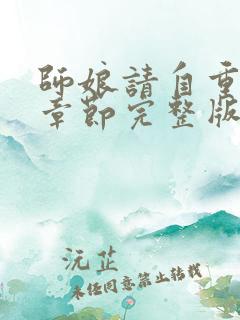 師娘請自重
章節完整版
沅芷
未經同意禁止轉載